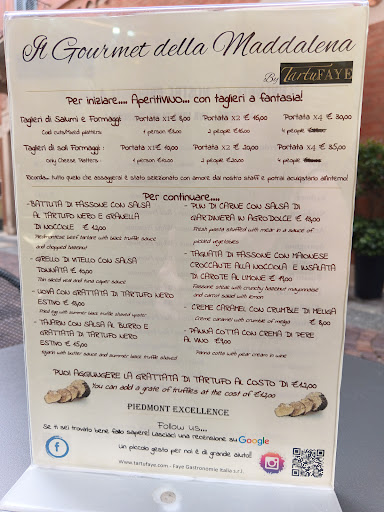 Il Gourmet della Maddalena
By TartuFAYE
Per iniziare.... AperitiVINO... con taglieri a fantasia!
Taglieri di Salumi e Formaggi Portata x1 € 8,00 Portata x2 € 16,00 Portata x4 € 30,00
Cold cuts/mixed platters: 1 person 2 people 4 people
Taglieri di soli Formaggi: Portata x1 € 10,00 Portata x2 € 20,00 Portata x4 € 35,00
Only Cheese Platters: 1 person 2 people € 20,00 4 people
Ricorda... tutto quello che assaggerai è stato selezionato con amore dal nostro staff e potrai acquistarlo all'interno!
Per continuare....
- BATTUTA DI FASSONE CON SALSA
AL TARTUFO NERO E GRANELLA
DI NOCCIOLE € 12,00
Piedmontese beef tartare with black truffle sauce
and chopped hazelnut
- GIRELLO DI VITELLO CON SALSA
TONNATA € 10,00
Thin sliced veal and tuna capers sauce
- UOVA CON GRATTATA DI TARTUFO NERO
ESTIVO € 15,00
Fried egg with summer black truffle shaved
- TAJARIN CON SALSA AL BURRO E
GRATTATA DI TARTUFO NERO
ESTIVO € 15,00
Tajarin with butter sauce and summer black truffle shaved
- PLIN DI CARNE CON SALSA DI
GIARDINIERA IN AGRODOLCE € 13,00
Fresh pasta stuffed with meat in a sauce of
pickled vegetables
- TAGLIATA DI FASSONE CON MAIONESE
CROCCANTE ALLA NOCCIOLA E INSALATA
DI CAROTE AL LIMONE
Fassone steak with crunchy hazelnut mayonnaise
and carrot salad with lemon
- CREME CARAMEL CON CRUMBLE DI MELIGA
Creme caramel with crumble of meliga € 8,00
- PANNA COTTA CON CREMA DI PERE
AL VINO
Panna cotta with pear cream in wine
PUOI AGGIUNGERE LA GRATTATA DI TARTUFO AL COSTO DI €12,00
You can add a grate of truffles at the cost of €12,00
PIEDMONT EXCELLENCE
Follow us...
Se ti sei trovato bene fallo sapere! Lasciaci una recensione su Google
Un piccolo gesto per noi è di grande aiuto!!
www.tartufaye.com - Faye Gastronomie Italia s.r.l.